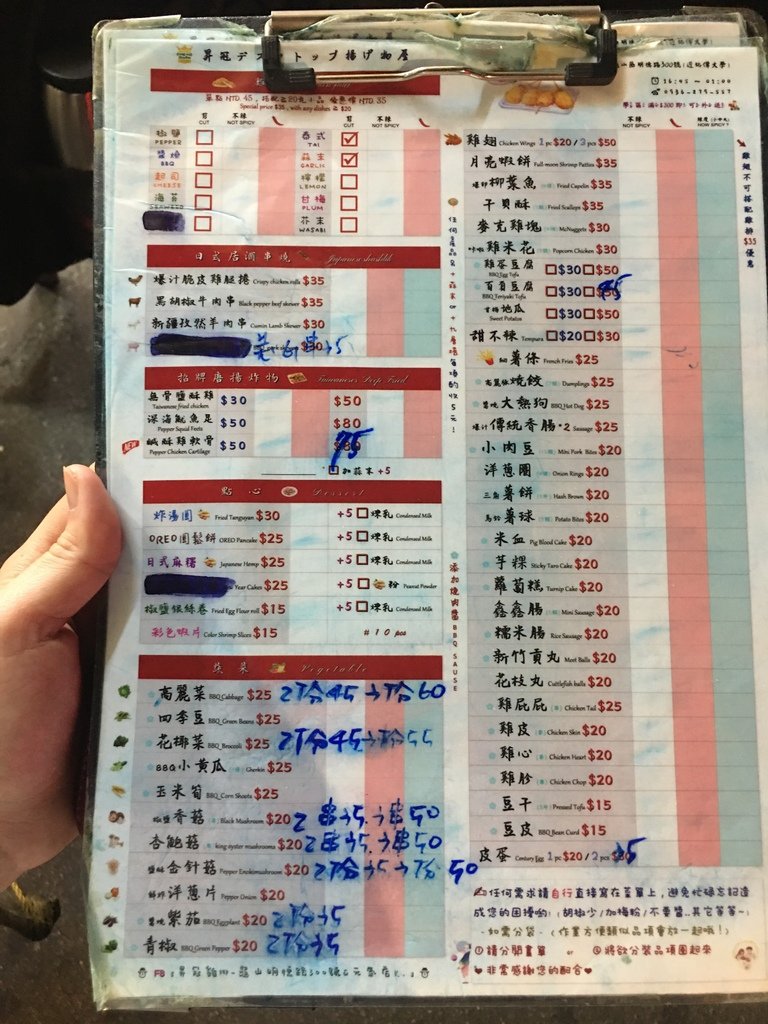 昇冠デスクトップ揚げ物屋
單點 NTD. 45
Special price $35, with any dishes ≧ $20
16:45 ~ 01:00
切 CUT
不辣 NOT SPICY
椒鹽 PEPPER
醬燒 BBQ
起司 CHEESE
海苔 SEAWEED
泰式 TAI
蒜末 GARLIC
檸檬 LEMON
甘梅 PLUM
芥末 WASABI
日式居酒串燒 Japanese shashlik
爆汁脆皮雞腿捲 Crispy chicken rolls $35
黑胡椒牛肉串 Black pepper beef skewer $35
新疆孜然羊肉串 Cumin Lamb Skewer $30
招牌唐揚炸物 Taiwanese Deep Fried
無骨鹽酥雞 Taiwanese fried chicken $30 $50
深海魷魚足 Pepper Squid Feets $50 $80
NEW 鹹酥雞軟骨 Pepper Chicken Cartilage $50 75
加蒜末 +5
點心 Dessert
炸湯圓 Fried Tangyuan $30 +5 煉乳 Condensed Milk
OREO圓鬆餅 OREO Pancake $25 +5 煉乳 Condensed Milk
日式麻糬 Japanese Hemp $25 +5 煉乳 Condensed Milk
Year Cakes $25 +5 粉 Peanut Powder
椒鹽銀絲卷 Fried Egg Flour roll $15 +5 煉乳 Condensed Milk
彩色蝦片 Color Shrimp Slices $15 #10 pcs
蔬菜 Vegetable
高麗菜 BBQ Cabbage $25 2份45→份60
四季豆 BBQ Green Beans $25
花椰菜 BBQ Broccoli $25 2份45→份55
BBQ小黃瓜 Gherkin $25
玉米筍 BBQ Corn Shoots $25
椒鹽香菇 Black Mushroom $20 2串35 串50
杏鮑菇 king oyster mushrooms $20 2串35 串50
金針菇 Pepper Enokimushroom $20 50
鮮炸洋蔥片 Pepper Onion $20
醬燒紫茄 BBQ Eggplant $20
青椒 BBQ Green Pepper $20
不辣 NOT SPICY
雞翅 Chicken Wings 1 pc $20 / 3 pcs $50
月亮蝦餅 Full-moon Shrimp Patties $35
爆卵柳葉魚 Fried Capelin $35
干貝酥 Fried Scallops $35
麥克雞塊 McNuggets $30
雞米花 Popcorn Chicken $30
雞蛋豆腐 BBQ Egg Tofu $30 $50
百頁豆腐 BBQ Teriyaki Tofu $30 45
甘梅地瓜 Sweet Potatos $30 $50
甜不辣 Tempura $20 $30
細薯條 French Fries $25
高麗菜燒餃 Dumplings $25
醬燒大熱狗 BBQ Hot Dog $25
爆汁傳統香腸*2 Sausage $25
小肉豆 Mini Pork Bites $20
洋蔥圈 Onion Rings $20
三角薯餅 Hash Brown $20
馬鈴薯球 Potato Bites $20
米血 Pig Blood Cake $20
芋粿 Sticky Taro Cake $20
蘿蔔糕 Turnip Cake $20
鑫鑫腸 Mini Sausage $20
糯米腸 Rice Sausage $20
新竹貢丸 Meet Balls $20
花枝丸 Cuttlefish balls $20
雞屁屁 Chicken Tail $25
雞皮 Chicken Skin $20
雞心 Chicken Heart $20
雞胗 Chicken Chop $20
豆干 Pressed Tofu $15
豆皮 BBQ Bean Curd $15
皮蛋 Century Egg 1 pc $20 / 2 pcs 35
雞翅不可搭配雞排$35優惠
添加燒肉醬 BBQ SAUSE
任何需求請自行直接寫在菜單上,避免忙碌忘記造
成您的困擾喲!(胡椒少/加梅粉/不要醬..其它等等~)
-如需分袋-(作業方便類似品項會放一起哦!)
①請分開畫單 or ②將欲分裝品項圈起來
♥非常感謝您的配合♥